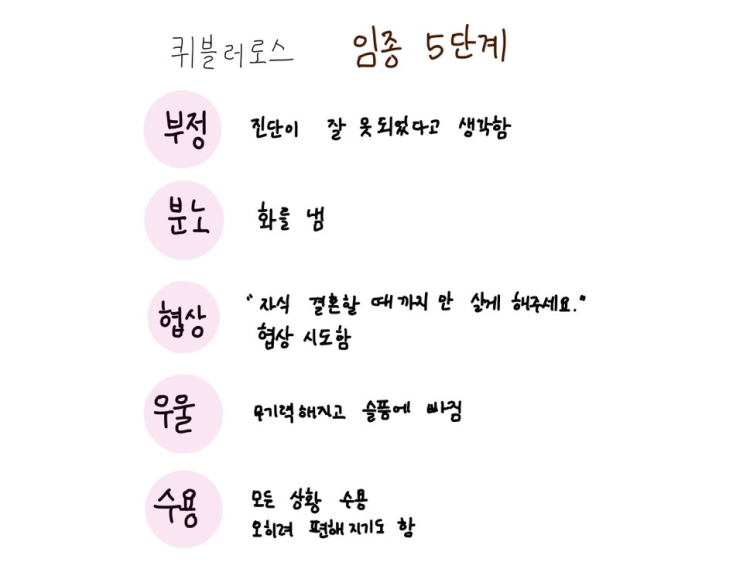 퀴블러로스 임종 5단계
부정 진단이 잘 못되었다고 생각함
분노 화를 냄
협상 "자식 결혼할 때까지 만 살게 해주세요."
협상 시도함
우울 무기력해지고 슬픔에 빠짐
수용 모든 상황 수용
오히려 편해지기도 함